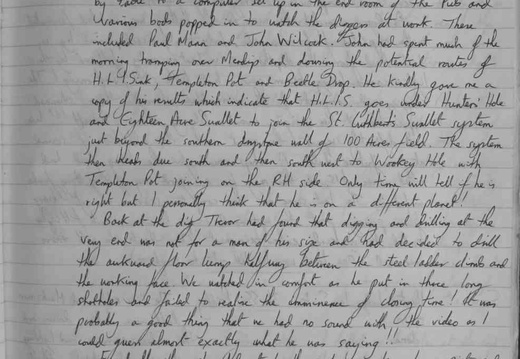 by cable to a computer set up in the end room of the Pub and
various bods popped in to watch the diggers at work. These
included Paul Mann and John Wilcock. John had spent much of the
morning tramping over Mendip and dowsing the potential routes of
H.L.I. Sink, Templeton Pot and Beetle Drop. He kindly gave me a
copy of his results which indicate that H.L.I.S. goes under Hunters' Hole
and Eighteen Acre Swallet to join the St. Cuthbert's Swallet system
just beyond the southern drystone wall of 100 Acres field. The system
then heads due south and then south west to Wookey Hole with
Templeton Pot joining on the RH side. Only time will tell if he is
right but I personally think that he is on a different planet!
Back at the dig Trevor had found that digging and drilling at the
very end was not for a man of his size and had decided to drill
the awkward floor lump halfway between the steel ladder climb and
the working face. We watched in comfort as he put in three long
shotholes and failed to realise the imminence of closing time! It was
probably a good thing that we had no sound with the video as I
could guess almost exactly what he was saying!!